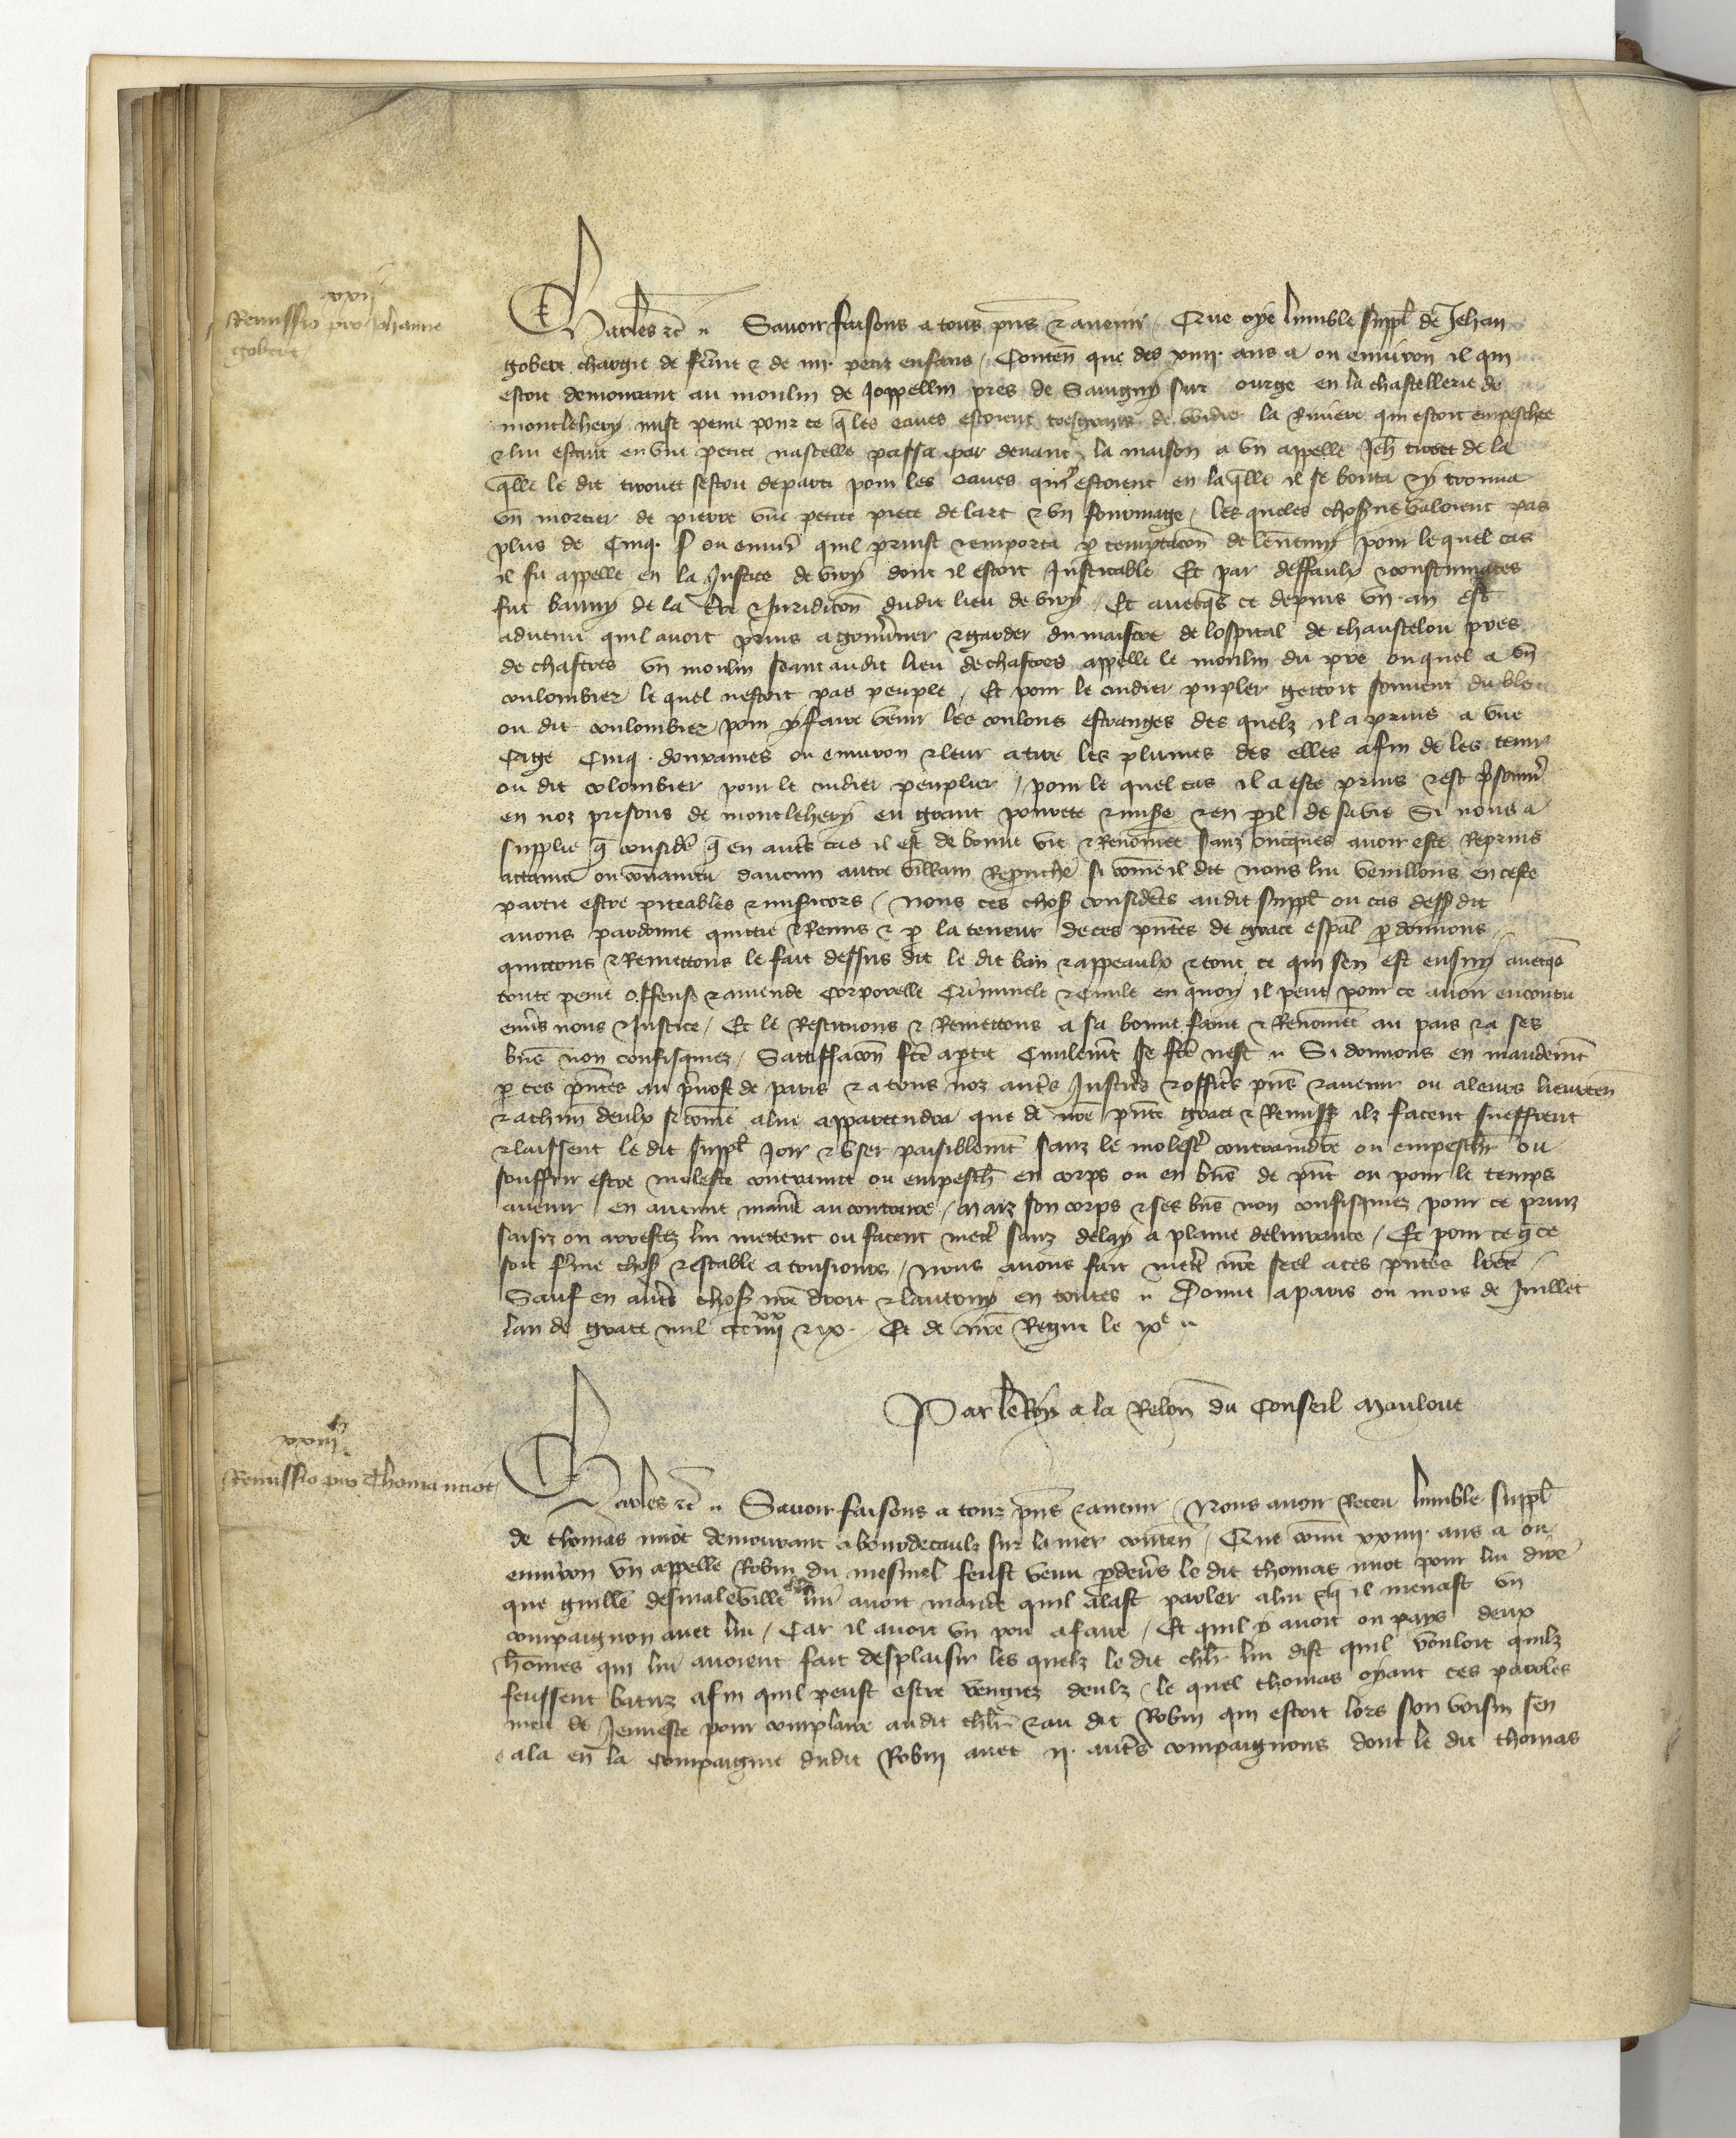 xxij
Remissio pro Johanne
gobert
Charles etc̄ Savoir faisons a tous pn̄s et avenir / Que oye lumble suppl̄ de Jehan
gobert chargie de fem̄e et de iiij petiz enfans / Conten̄ que des xiiij ans a ou environ il qui
estoit demourant au moulin de Joppellin pres de Savigny sur ourge en la chastellerie de
montlehery mist peine pour ce q̄ les eaues estoient tresgrans de widier la Riviere qui estoit empeschee
et lui estant en une petite nasselle passa par devant la maison a un appelle Jeh̄ tirouet de la
q̄lle le dit tirouet sestoit departi pour les eaues qui estoient en laq̄lle il se bouta et y trouva
un mortier de pierre une petite piece de lart et un fourmage / les queles chos̄ ne valoient pas
plus de Cinq s ou envir̄ quil prinst et emporta p temptacōn de lennemy pour lequel cas
il fu appelle en la Justice de viry dont il estoit Justicable Et par deffaulx et contumaces
fut banny de la tr̄e et Juridicōn dudit lieu de viry / Et avecq̄s ce depuis un an est
advenu quil avoit prins a gouv̄ner et garder du maistre de lospital de chantelou pres
de chastres un moulin seant audit lieu de chastres appelle le moulin du pre ouquel a un
coulombier le quel nestoit pas peuple / Et pour le cuidier pupler gettoit souvent du ble
ou dit coulombier pour y faire venir les coulons estranges des quelz il a prins a une
Cage Cinq douzaines ou environ et leur a tire les plumes des elles afin de les tenir
ou dit colombier pour le cuidier peuplier / pour le quel cas il a este prins et est p̄sonn̄
en noz prisons de montlehery en grant povrete et mis̄e et en p̄il de sa vie Si nous a
supplie q̄ consider̄ q̄ en autr̄s cas il est de bonne vie et Renom̄ee sanz oncques avoir este Reprins
attaint ou convaincu daucun autre villain Reprouche si com̄e il dit nous lui veuillons en ceste
partie estre piteables et misicors / Nous ces chos̄ considerees audit suppl̄ ou cas dess̄ dit
avons pardonne quittie et Remis et p la teneur de ces pn̄tes de grace esp̄al p donnons
quittons et Remettons le fait dessus dit le dit ban et appeaulx et tout ce qui sen est ensuy avecq̄s
toute peine offense et amende Corporelle Criminele et Civile en quoy il peut pour ce avoir encouru
env̄s nous et Justice / Et le Restituons et Remettons a sa bonne fame et Renom̄ee au pais et a ses
bn̄s non confisquez / Satiffacōn fc̄e a partie Civilem̄t se fc̄e nest Si donnons en mandem̄t
p ces pn̄tes au p̄vost de paris et a tous noz autr̄s Justicīs et officīs pn̄s et avenir ou a leurs lieuxten̄
et a ch̄un deulx si com̄e a lui appartendra que de nr̄e pn̄te grace et Remiss̄ ilz facent sueffrent
et laissent le dit suppl̄ Joir et user paisiblem̄t sanz le molest̄ contraindre ou empesch̄ ou
souffrir estre moleste contraint ou empesch̄ en corps ou en bn̄s de pn̄t ou pour le temps
avenir en aucune manīe au contraire / Mais son corps et ses bn̄s non confisquez pour ce prinz
saisiz ou arrestez lui mettent ou facent mett̄ sanz delay a plaine delivrance / Et pour ce q̄ ce
soit ferme chos̄ et estable a tousiours / Nous avons fait mett̄ nr̄e seel a ces pn̄tes lr̄es /
Sauf en autr̄s chos̄ nr̄e droit et lautruy en toutes Donne a paris ou mois de Juillet
lan de grace mil ccc iiijxx et ix / Et de nr̄e Regne le ixe
Par le Roy a la Relon̄ du Conseil Maulout
xxiij
Remissio pro Thoma niot
Charles etc̄ Savoir faisons a touz pn̄s et avenir / Nous avoir Receu lumble suppl̄
de thomas niot demourant a bourdeaulx sur la mer conten̄ / Que com̄e xxiiij ans a ou
environ un appelle Robin du mesnil feust venu p̄devers le dit thomas niot pour lui dire
que guill̄e desmaleville chl̄r lui avoit mande quil alast parler a lui et q̄ il menast un
compaignon avec lui / Car il avoit un pou a faire / Et quil y avoit ou pays deux
hom̄es qui lui avoient fait desplaisir les quelz le dit chl̄r lui dist quil vouloit quilz
feussent batuz afin quil peust estre vengiez deulz / le quel thomas oyant ces paroles
meu de Jeunesce pour complaire audit chl̄r et au dit Robin qui estoit lors son voisin sen
ala en la compaignie dudit Robin avec ij autr̄s compaignons dont le dit thomas